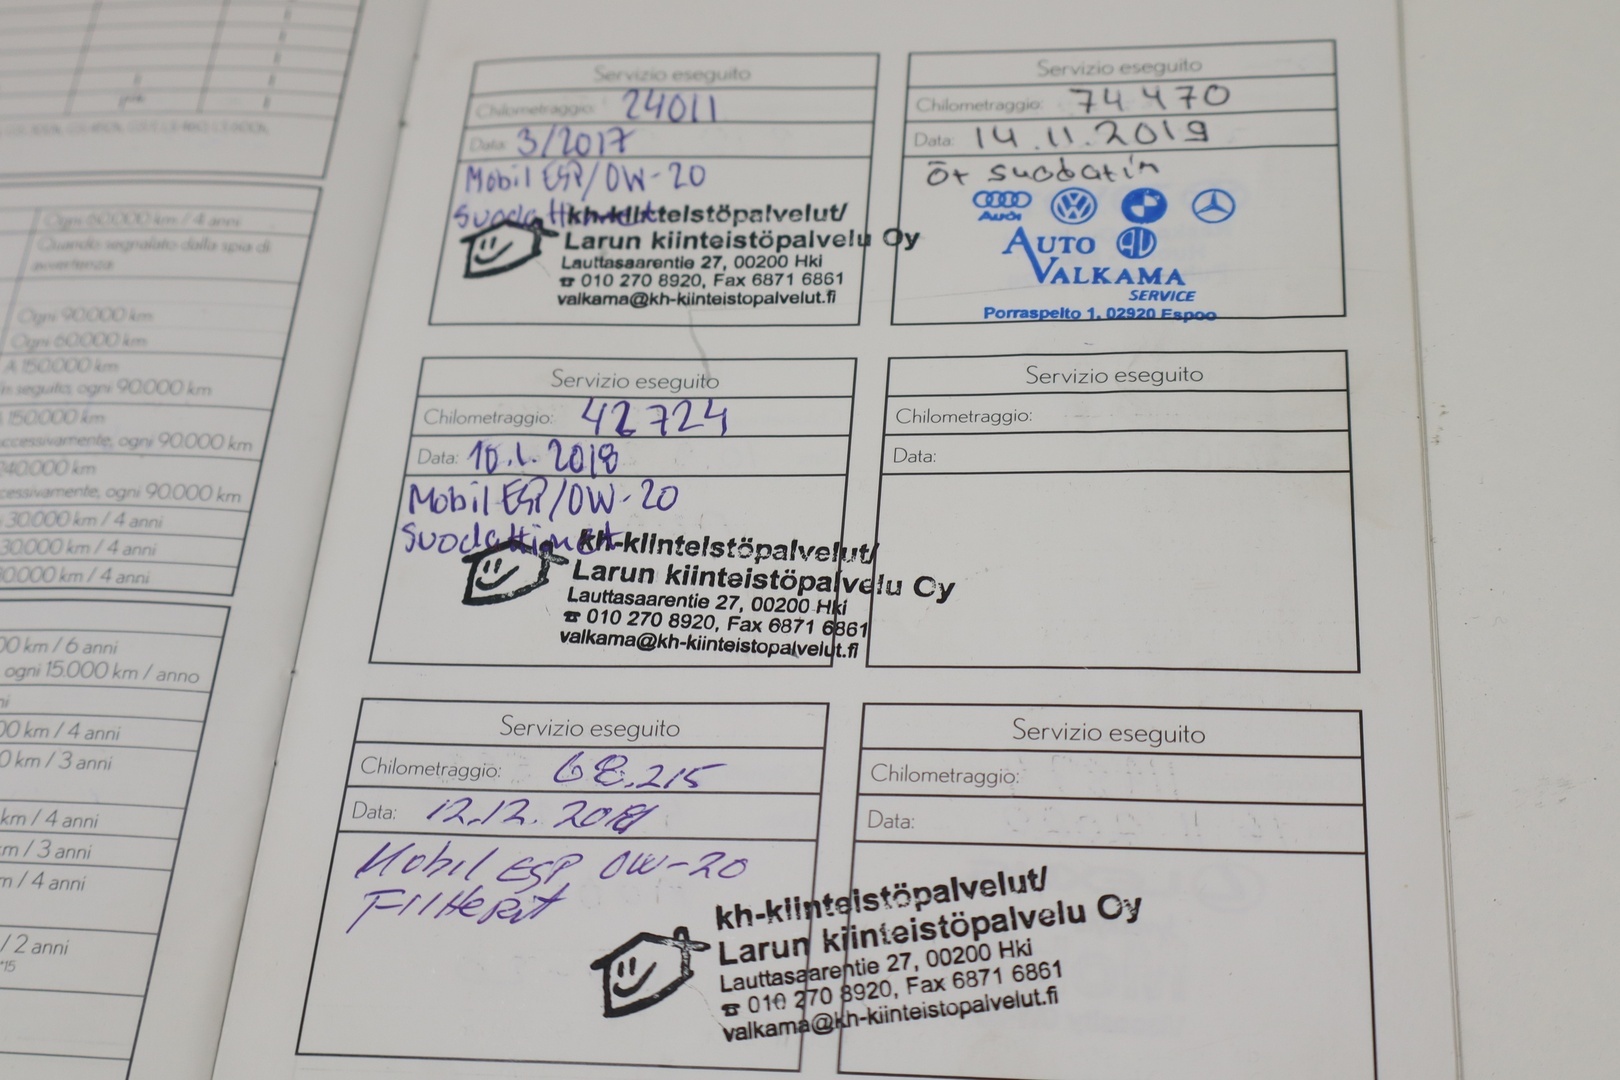 Ogni 60.000 km / 4 anni
Quando segnalato dalla spia di
avvertenza
Ogni 90.000 km
Ogni 60.000 km
A 150.000 km
in seguito, ogni 90.000 km
150.000 km
ccessivamente, ogni 90.000 km
240.000 km
cessivamente, ogni 90.000 km
30.000 km / 4 anni
30.000 km / 4 anni
0.000 km / 4 anni
00 km / 6 anni
ogni 15.000 km / anno
ni
00 km / 4 anni
0 km / 3 anni
km / 4 anni
m / 3 anni
m / 4 anni
/ 2 anni
*15
Servizio eseguito
Chilometraggio: 24011
Data: 3/2017
Mobil ESP/0W-20
Suodattimet
kh-kiinteistöpalvelut/
Larun kiinteistöpalvelu Oy
Lauttasaarentie 27, 00200 Hki
☎ 010 270 8920, Fax 6871 6861
valkama@kh-kiinteistopalvelut.fi
Servizio eseguito
Chilometraggio: 42724
Data: 10.1.2018
Mobil ESP/0W-20
Suodattimet
kh-kiinteistöpalvelut/
Larun kiinteistöpalvelu Oy
Lauttasaarentie 27, 00200 Hki
☎ 010 270 8920, Fax 6871 6861
valkama@kh-kiinteistopalvelut.fi
Servizio eseguito
Chilometraggio: 68.215
Data: 12.12.2018
Mobil ESP 0W-20
Filtterit
kh-kiinteistöpalvelut/
Larun kiinteistöpalvelu Oy
Lauttasaarentie 27, 00200 Hki
☎ 010 270 8920, Fax 6871 6861
valkama@kh-kiinteistopalvelut.fi
Servizio eseguito
Chilometraggio: 74470
Data: 14.11.2019
Öt suodatin
Audi
AUTO
VALKAMA
SERVICE
Porraspelto 1, 02920 Espoo
Servizio eseguito
Chilometraggio:
Data:
Servizio eseguito
Chilometraggio:
Data: